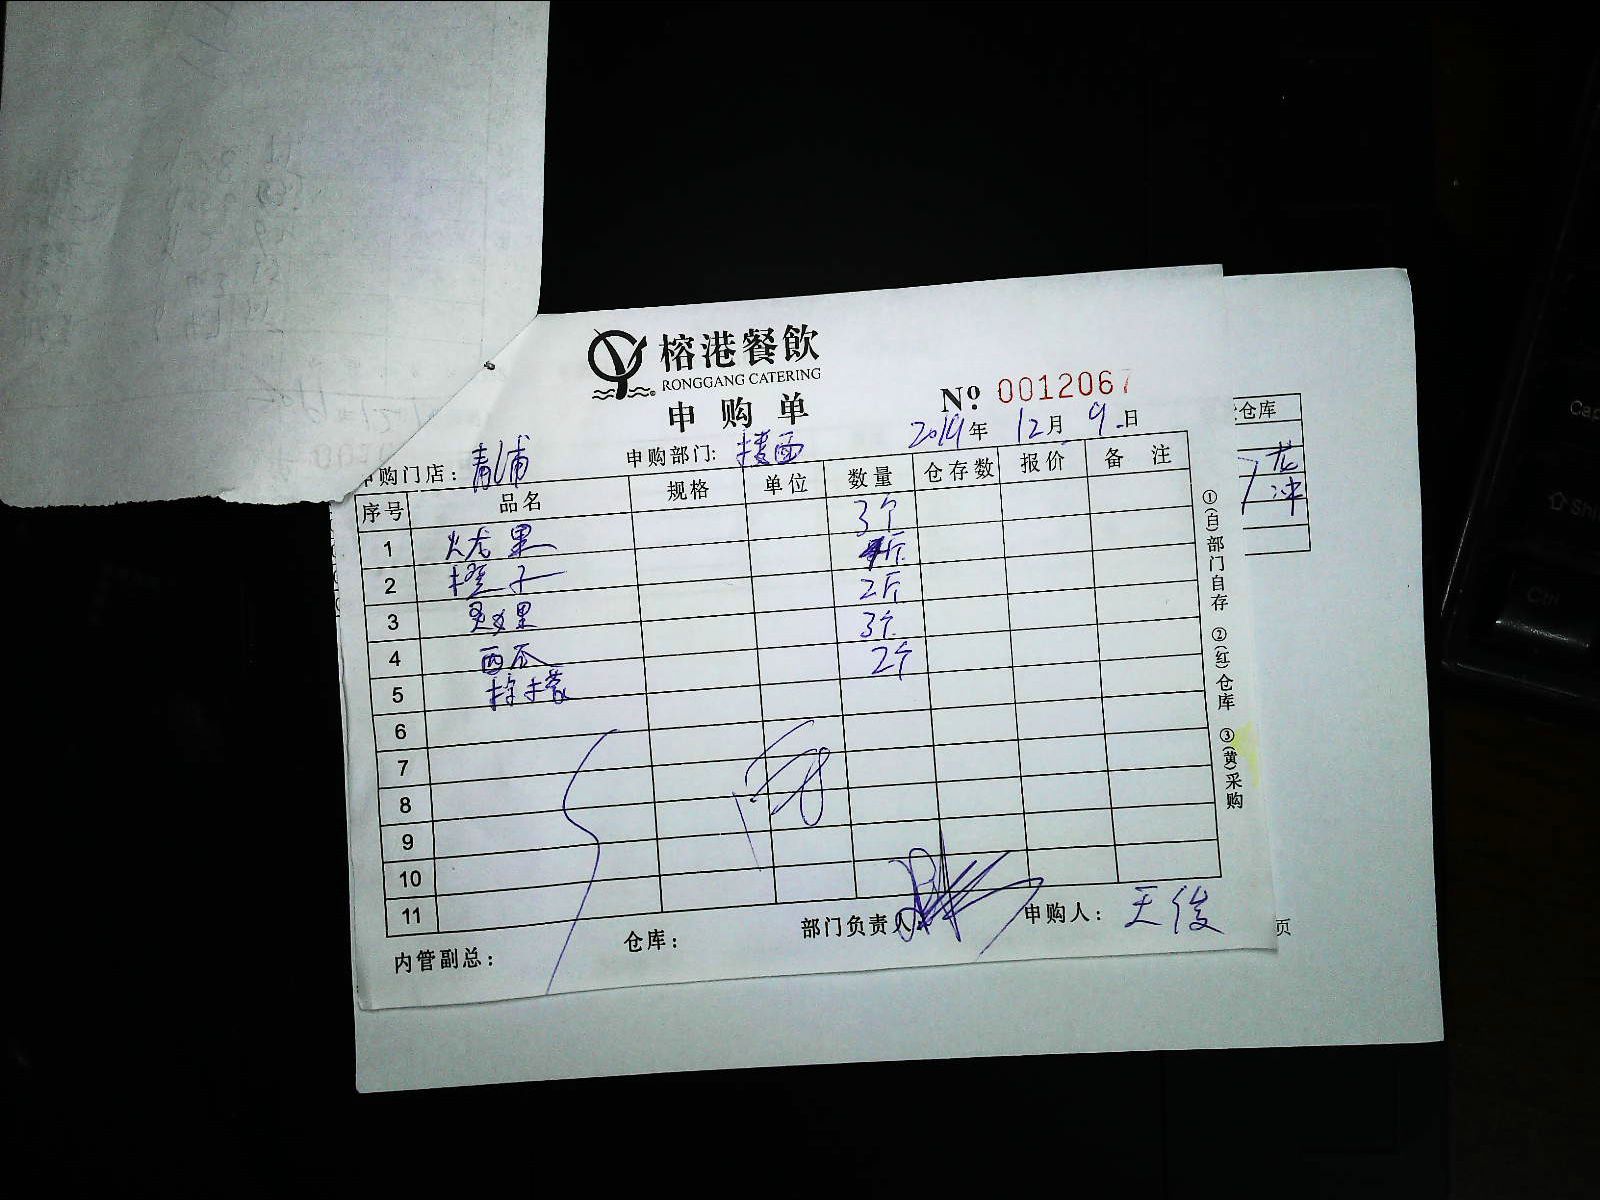 榕港餐飲
RONGGANG CATERING
申购单
№ 0012067
2019年12月9日
申购门店：青浦 申购部门：楼面
序号 品名 规格 单位 数量 仓存数 报价 备注
1 火龙果 3个
2 橙子 斤
3 果 2斤
4 西瓜 3个
5 柠檬 2个
6
7
8
9
10
11
内管副总： 仓库： 部门负责人： 申购人：王俊
①(白)部门自存 ②(红)仓库 ③(黄)采购
仓库
龙
冲
页